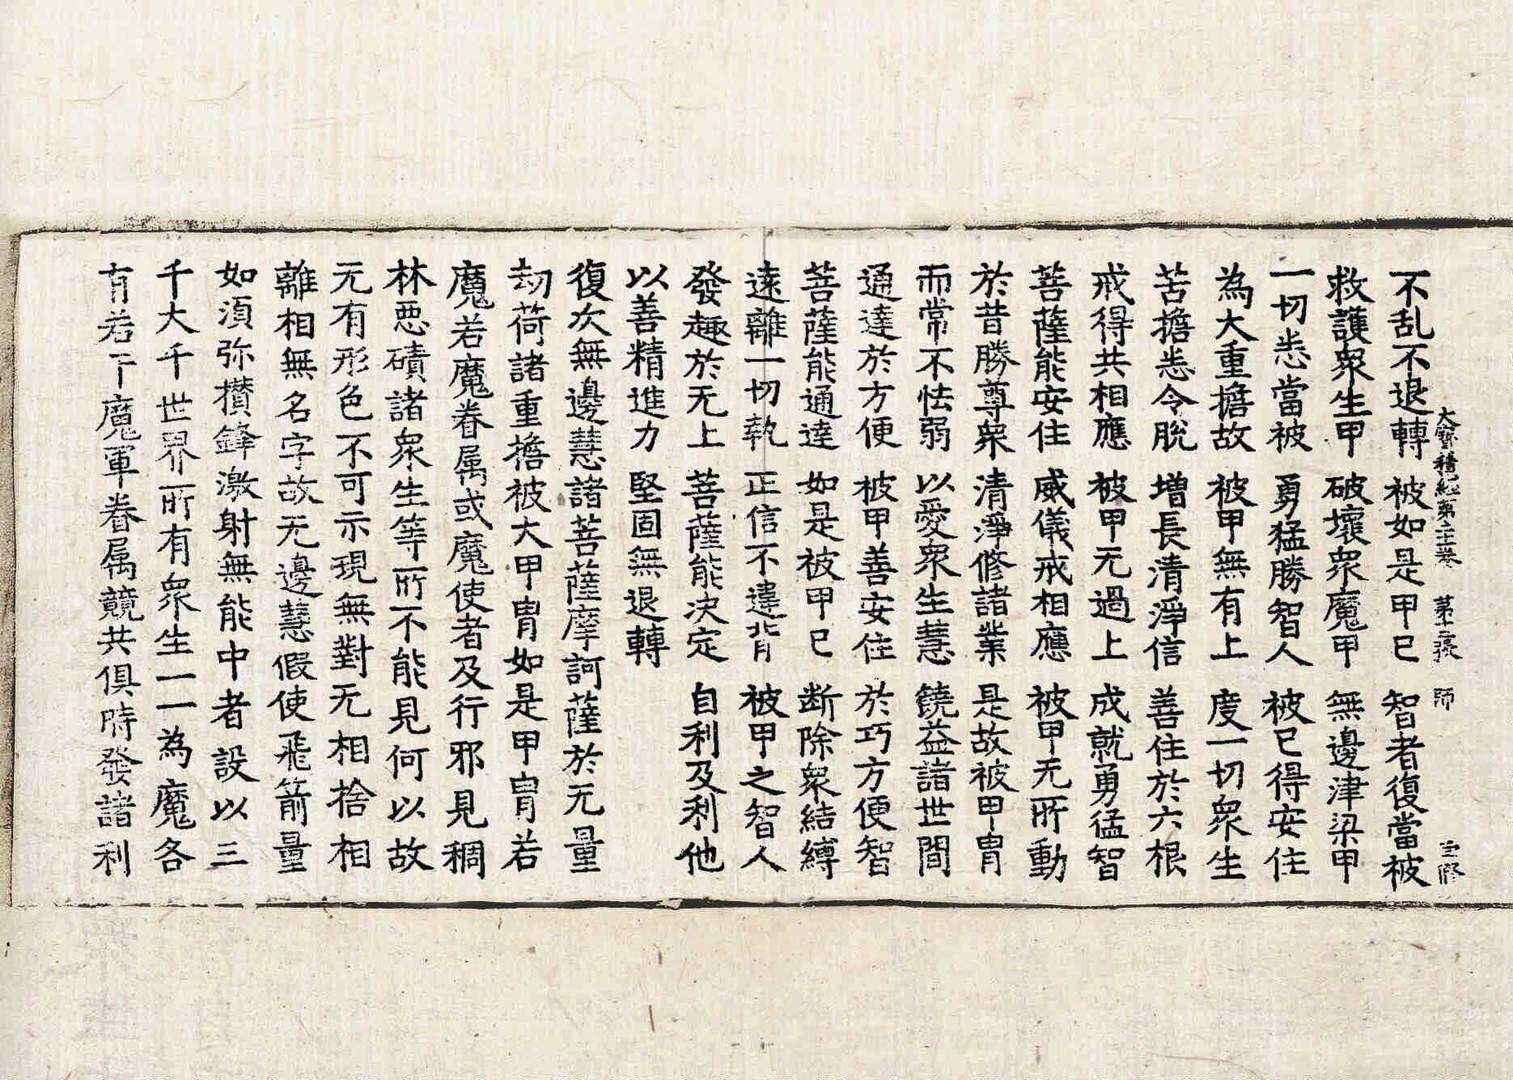 大寶積經第二十一卷 第三張 師
不乱不退轉 被如是甲已 智者復當被
救護衆生甲 破壞衆魔甲 無邊津梁甲
一切悉當被 勇猛勝智人 被已得安住
為大重擔故 被甲無有上 度一切衆生
苦擔悉令脫 增長清淨信 善住於六根
戒得共相應 被甲无過上 成就勇猛智
菩薩能安住 威儀戒相應 被甲无所動
於昔勝尊衆 清淨修諸業 是故被甲胄
而常不怯弱 以愛衆生慧 饒益諸世間
通達於方便 被甲善安住 於巧方便智
菩薩能通達 如是被甲已 断除衆結縛
遠離一切執 正信不違背 被甲之智人
發趣於无上 菩薩能決定 自利及利他
以善精進力 堅固無退轉
復次無邊慧諸菩薩摩訶薩於无量
劫荷諸重擔被大甲胄如是甲胄若
魔若魔眷属或魔使者及行邪見稠
林惡磧諸衆生等所不能見何以故
无有形色不可示現無對无相捨相
離相無名字故无邊慧假使飛箭量
如須弥攢鋒激射無能中者設以三
千大千世界所有衆生一一為魔各
有若干魔軍眷属競共俱時發諸利